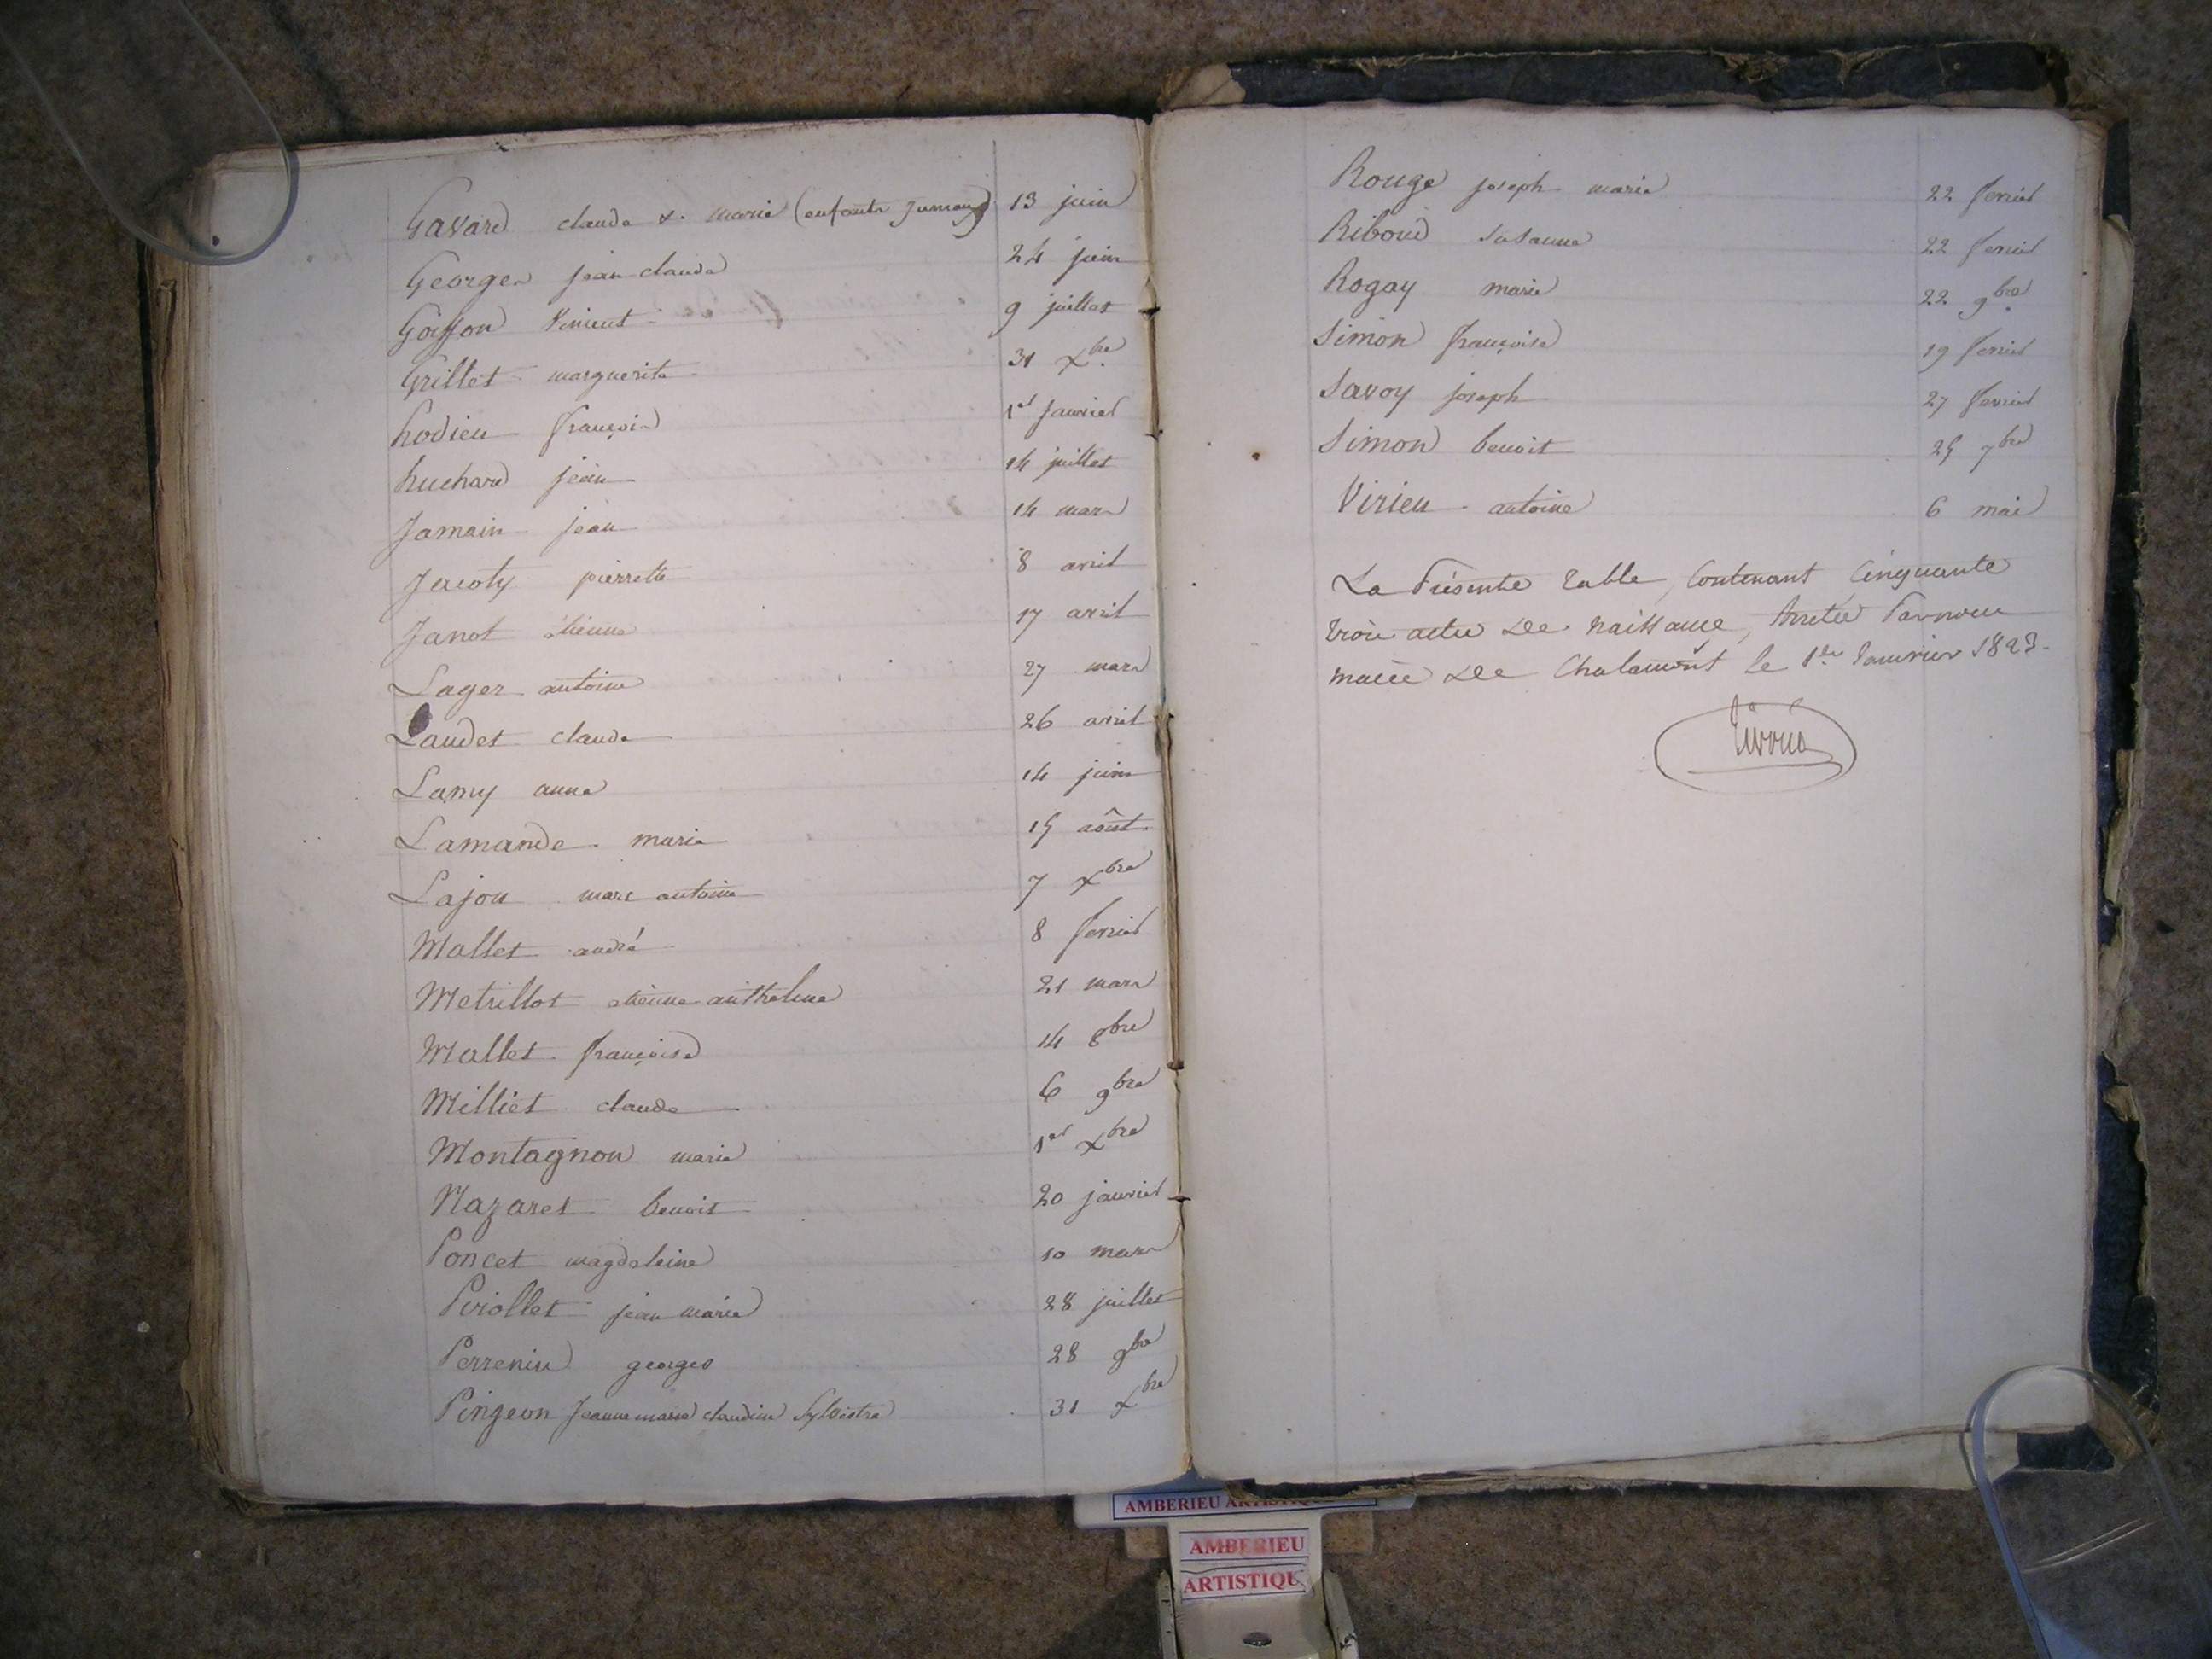 Gavard claude & marie (enfants Jumeaux) 13 juin
Georges jean claude 24 juin
Goiffon Vincent 9 juillet
Grillet marguerite 31 xbre
hodieu françois 1er janvier
huchard jean 14 juillet
Jamain jean 14 mars
Jacoty pierrette 8 avril
Janot étienne 17 avril
Lager antoine 27 mars
Laudet claude 26 avril
Lamy anne 14 juin
Lamande marie 15 août
Lajou marc antoine 7 xbre
Mallet andré 8 fevrier
Metrillot etienne anthelme 21 mars
Mallet françoise 14 8bre
Milliet claude 6 9bre
Montagnon marie 1er xbre
Nazaret benoit 20 janvier
Poncet magdeleine 10 mars
Piriollet jean marie 28 juillet
Perrenin georges 28 9bre
Pingeon Jeanne marie claudine Sylvestre 31 xbre
Rouge joseph marie 22 fevrier
Riboud susanne 22 fevrier
Rogay marie 22 9bre
Simon françoise 19 fevrier
Savoy joseph 27 fevrier
Simon benoit 25 7bre
Virieu antoine 6 mai
La Présente table, Contenant Cinquante
trois actes de Naissance, Arretée Par nous
maire de Chalamont le 1er Janvier 1823.
AMBERIEU ARTISTIQUE
AMBERIEU
ARTISTIQU